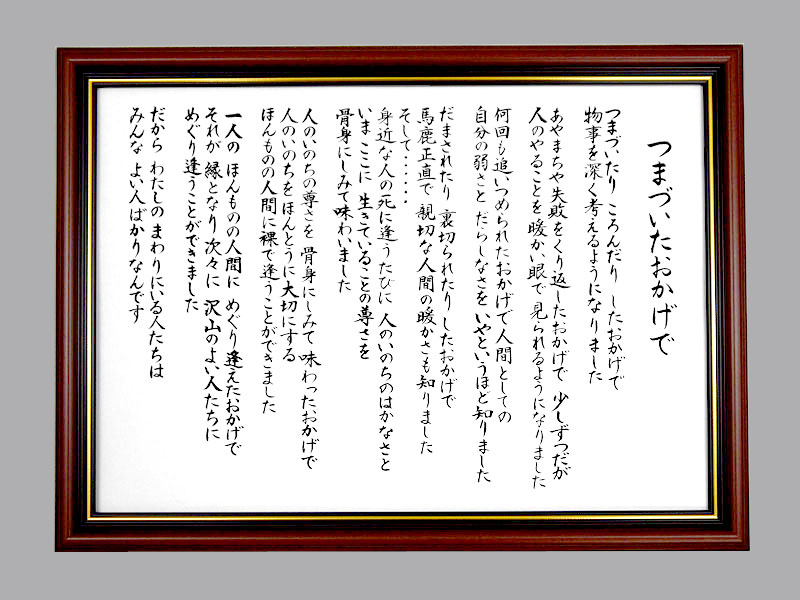 つまづいたおかげで
つまづいたり ころんだり したおかげで
物事を深く考えるようになりました
あやまちや失敗をくり返したおかげで 少しずつだが
人のやることを 暖かい眼で 見られるようになりました
何回も追いつめられたおかげで 人間としての
自分の弱さと だらしなさを いやというほど知りました
だまされたり 裏切られたり したおかげで
馬鹿正直で 親切な人間の暖かさも知りました
そして・・・・・・
身近な人の死に逢うたびに 人のいのちのはかなさと
いま ここに 生きていることの尊さを
骨身にしみて味わいました
人のいのちの尊さを 骨身にしみて 味わったおかげで
人のいのちを ほんとうに大切にする
ほんものの人間に裸で逢うことができました
一人の ほんものの人間に めぐり逢えたおかげで
それが 縁となり 次々に 沢山のよい人たちに
めぐり逢うことができました
だから わたしの まわりにいる人たちは
みんな よい人ばかりなんです